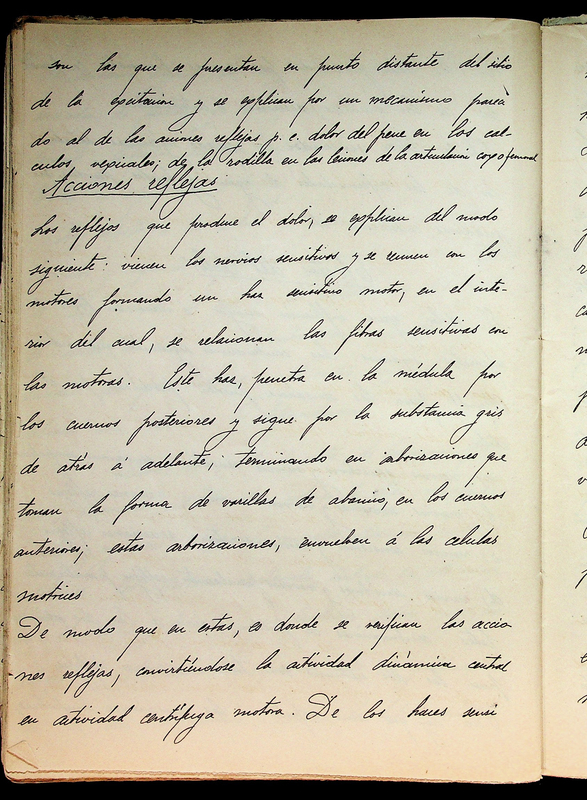 son las que se presentan en punto distante del sitio
de la excitacion y se explican por un mecanismo pareci
do al de las acciones reflejas p. e. dolor del pene en los cal-
culos, vexicales; de la rodilla en las lesiones de la articulacion coxo femoral
Acciones reflejas
Los reflejos que produce el dolor, se explican del modo
siguiente: vienen los nervios sensitivos y se reunen con los
motores formando un haz sensitivo motor, en el inte-
rior del cual, se relacionan las fibras sensitivas con
las motoras. Este haz, penetra en la médula por
los cuernos posteriores y sigue por la substancia gris
de atrás á adelante, terminando en arborizaciones que
toman la forma de varillas de abanico, en los cuernos
anteriores; estas arborizaciones, envuelven á las celulas
motrices
De modo que en estas, es donde se verifican las accio
nes reflejas, convirtiéndose la actividad dinámica central
en actividad centrífuga motora. De los haces sensi